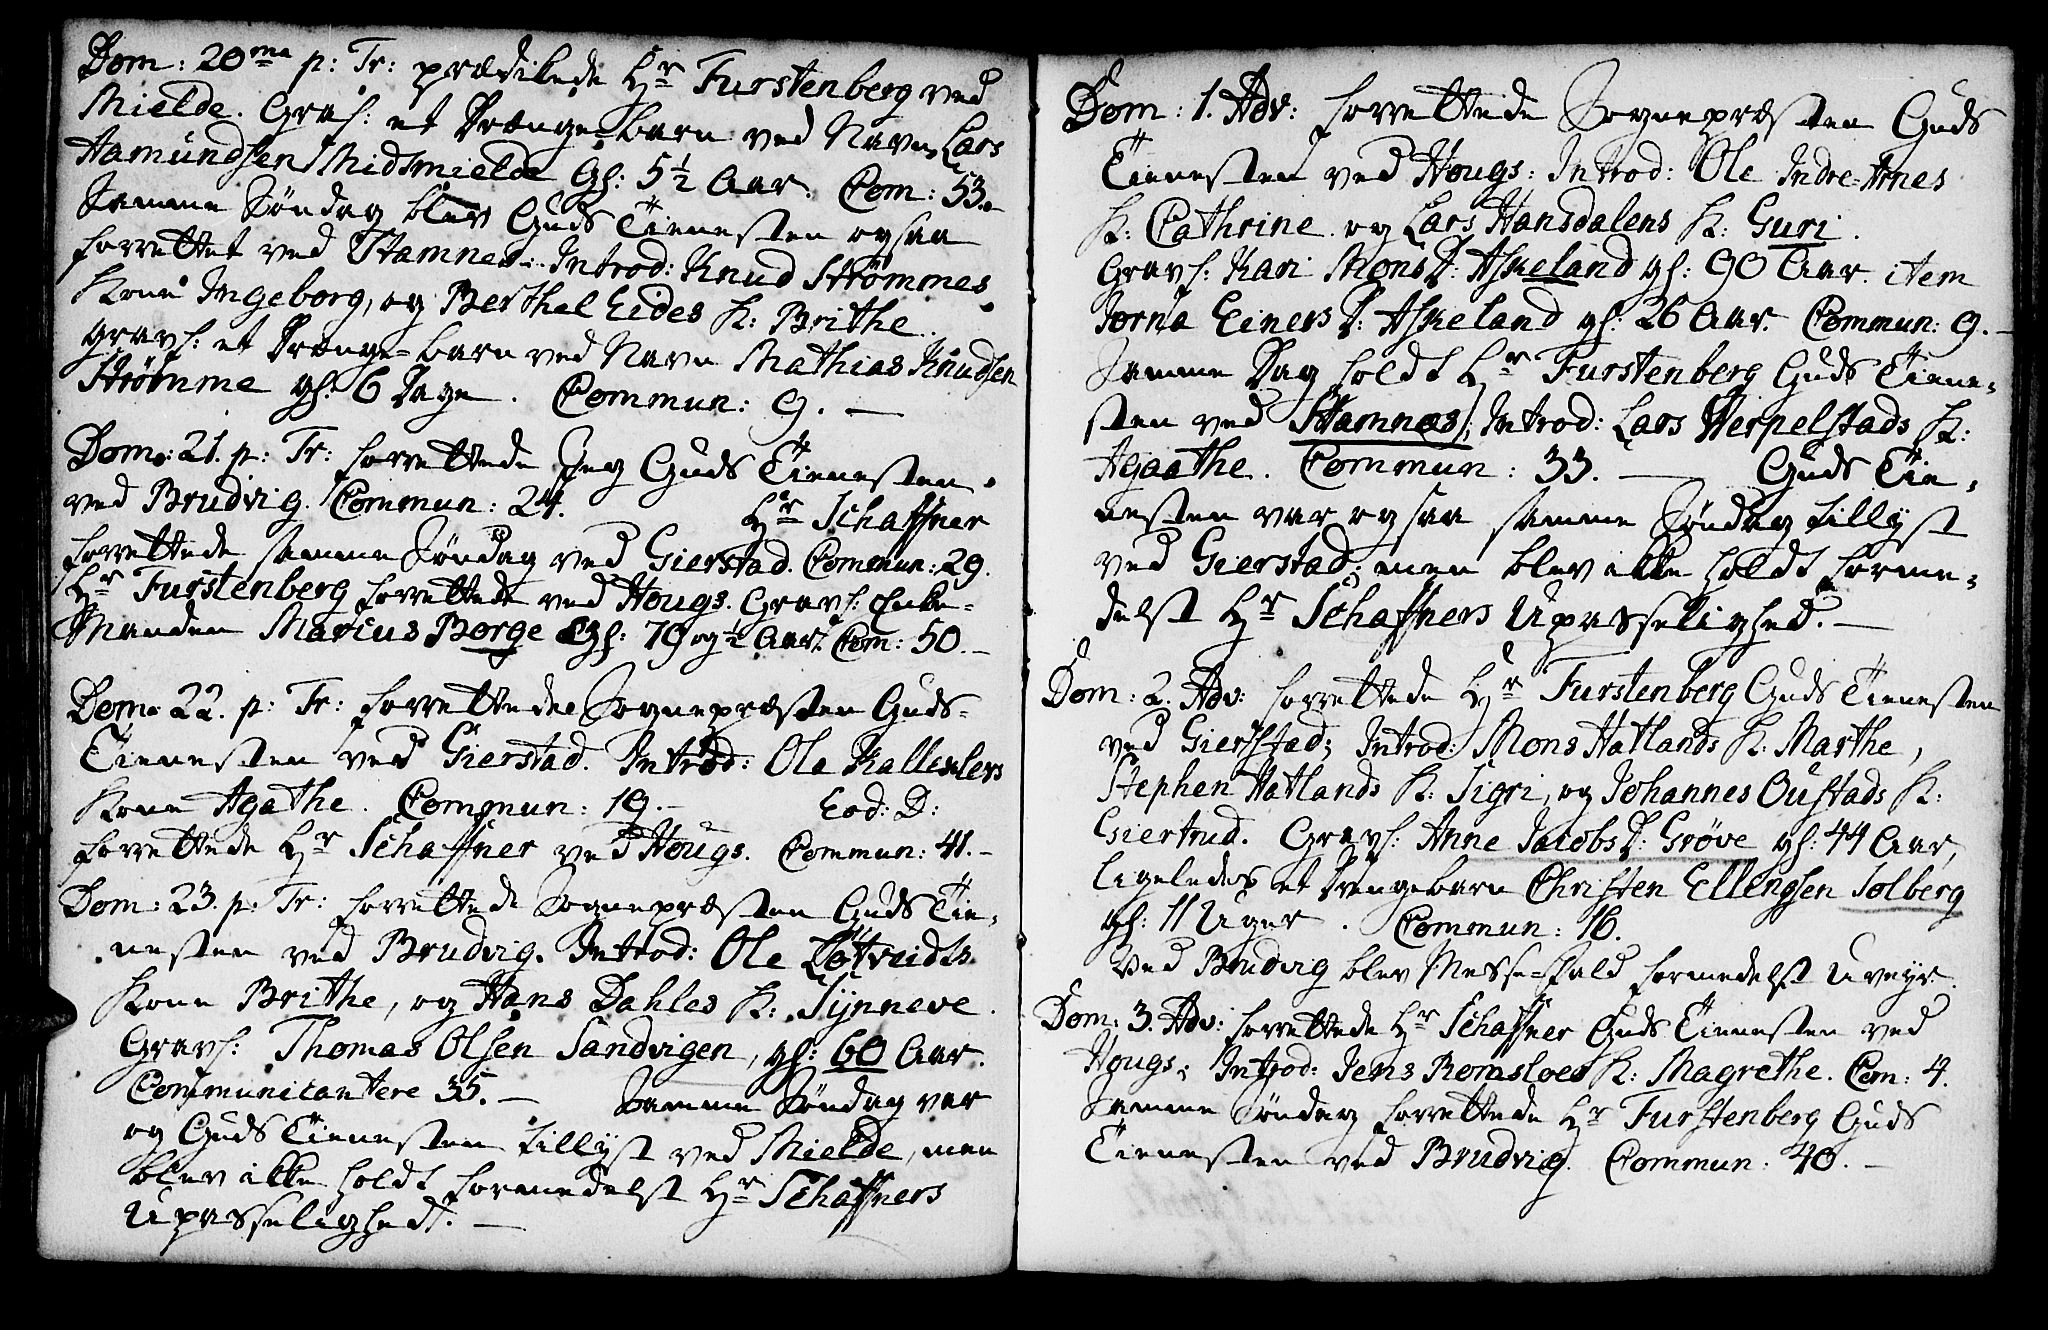 Dom: 20me p: Tr: prædikede Hr Furstenberg ved
Mielde. Graf: et Drænge-barn ved Navn Lars
Hamundsen Midsmielde gl: 5½ Aar. Com: 53.
Samme Søndag blev Guds Tienesten ogsaa
forrettet ved Stamnes. Introd: Knud Strømmes
Kone Ingeborg, og Berthel Eides K: Brithe.
gravf: et Drænge-barn ved Navn Mathias Knudsen
Strømme gl: 6 Dage. Commun: 9. —
Dom: 21. p: Tr: forrettede Jeg Guds Tienesten
ved Brudvig. Commun: 24. Hr Schaffner
forrettede samme Søndag ved Gierstad. Commun: 29.
Hr Furstenberg forrettede ved Hougs. Gravf: Enke-
Manden Marcus Borge gl: 79 og ½ Aar. Com: 50. —
Dom: 22. p: Tr: forrettede Sognepræsten Guds-
Tienesten ved Gierstad. Introd: Ole
Kone Agathe. Commun: 19. — Eod: D:
forrettede Hr Schaffner ved Hougs. Commun: 41. —
Dom: 23. p: Tr: forrettede Sognepræsten Guds Tie-
nesten ved Brudvig. Introd: Ole
Kone Brithe, og Hans Dahles K: Synneve.
Gravf: Thomas Olsen Sandvigen, gl: 60 Aar.
Communicantere 35. — Samme Søndag var
og Guds Tienesten tillyst ved Mielde, men
blev ikke holdt formedelst Hr Schaffners
Upasselighed. —
Dom: 1. Adv: forrettede Sognepræsten Guds
Tienesten ved Hougs: Introd: Ole Indre-Arnes
K: Cathrine. og Lars Hansdalens K: Guri.
Gravf: Kari Mons D: Askeland gl: 90 Aar. item
Jorna Einers D: Askeland gl: 26 Aar. Commun: 9. —
Samme Dag holdt Hr Furstenberg Guds Tiene-
sten ved Stamnes; Introd: Lars Herpelstads K:
Agaathe. Commun: 33. — Guds Tie-
nesten var ogsaa samme Søndag tillyst
ved Gierstad; men blev ikke holdt forme-
delst Hr Schaffners Upasselighed. —
Dom: 2. Adv: forrettede Hr Furstenberg Guds Tienesten
ved Gierstad; Introd: Mons Hatlands K: Marthe,
Stephen Hatlands K: Sigri, og Johannes Oustads K:
Giertrud. Gravf: Anne Jacobs D: Grøve gl: 44 Aar,
ligeledes et Drengebarn Christen Ellingsen Solberg
gl: 11 Uger. Commun: 16.
Ved Brudvig blev Messe-fald formedelst Uveyr.
Dom: 3. Adv: forrettede Hr Schaffner Guds Tienesten ved
Hougs; Introd: Jens Romsloes K: Magrethe. Com: 4.
Samme Søndag forrettede Hr Furstenberg Guds
Tienesten ved Brudvig. Commun: 40. —